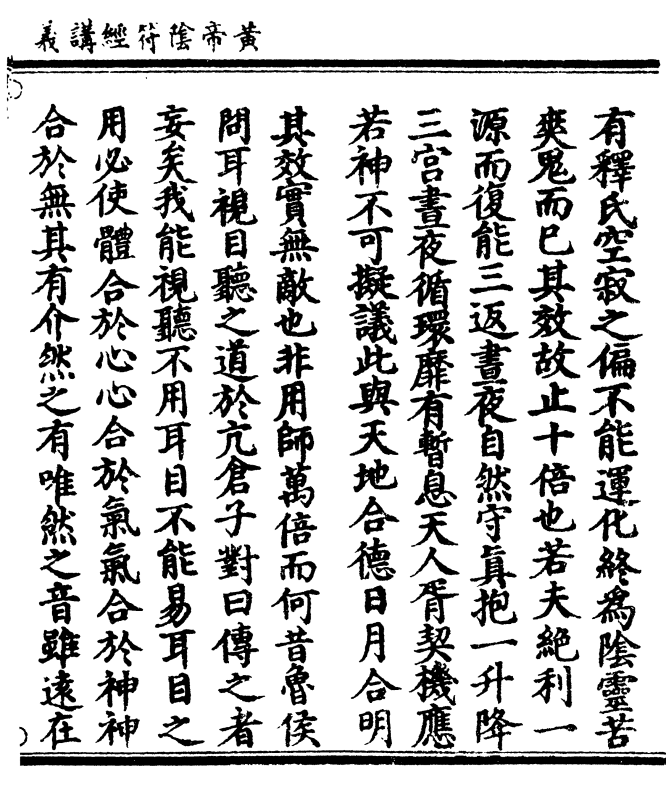 黃帝陰符經講義
有釋氏空寂之偏不能運化終爲陰靈苦
爽鬼而已其效故止十倍也若夫絶利一
源而復能三返晝夜自然守眞抱一升降
三宮晝夜循環靡有暫息天人胥契機應
若神不可擬議此與天地合德日月合明
其效實無敵也非用師萬倍而何昔魯侯
問耳視目聽之道於亢倉子對曰傳之者
妄矣我能視聽不用耳目不能易耳目之
用必使體合於心心合於氣氣合於神神
合於無其有介然之有唯然之音雖遠在